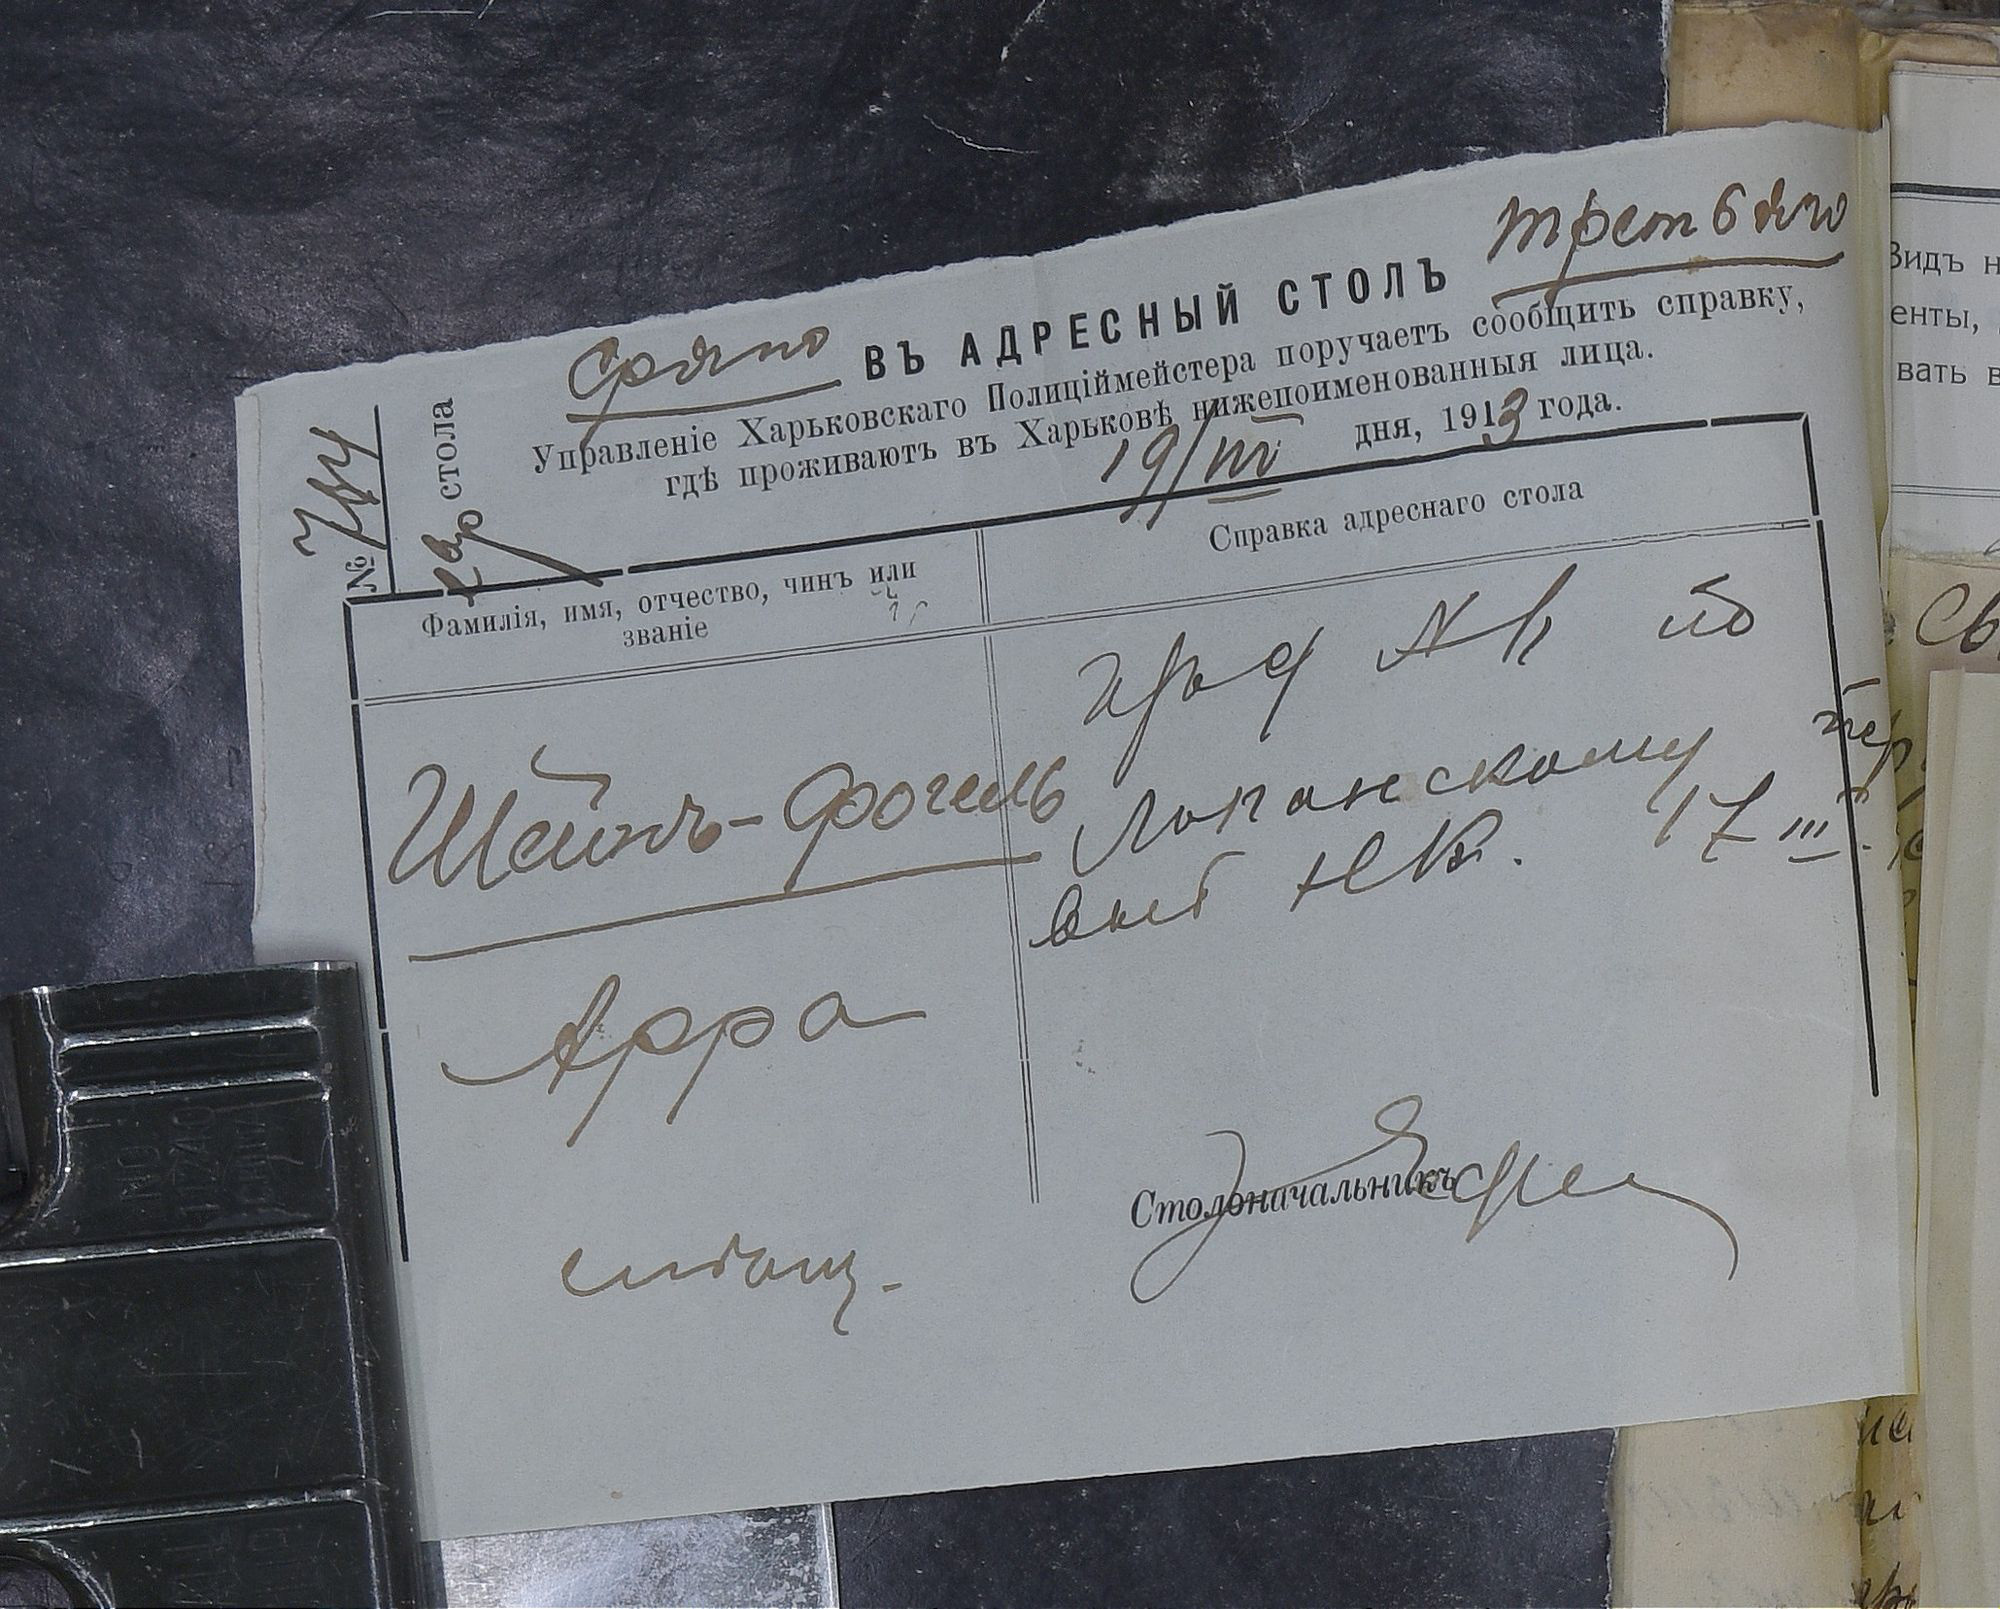 Срочно
ВЪ АДРЕСНЫЙ СТОЛЪ
Управленіе Харьковскаго Полиціймейстера поручаетъ сообщить справку,
гдѣ проживаютъ въ Харьковѣ нижепоименованныя лица.
19/III дня, 1913 года.
№ 744
стола
Фамилія, имя, отчество, чинъ или
званіе
Справка адреснаго стола
Шейнъ-Фогель
Арра
по
Лопанскому пер
17 III
выб
Столоначальникъ
Видъ н
енты,
вать в